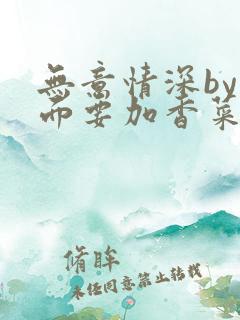 無意情深by
而要加香菜
脩眸
未经同意禁止转载